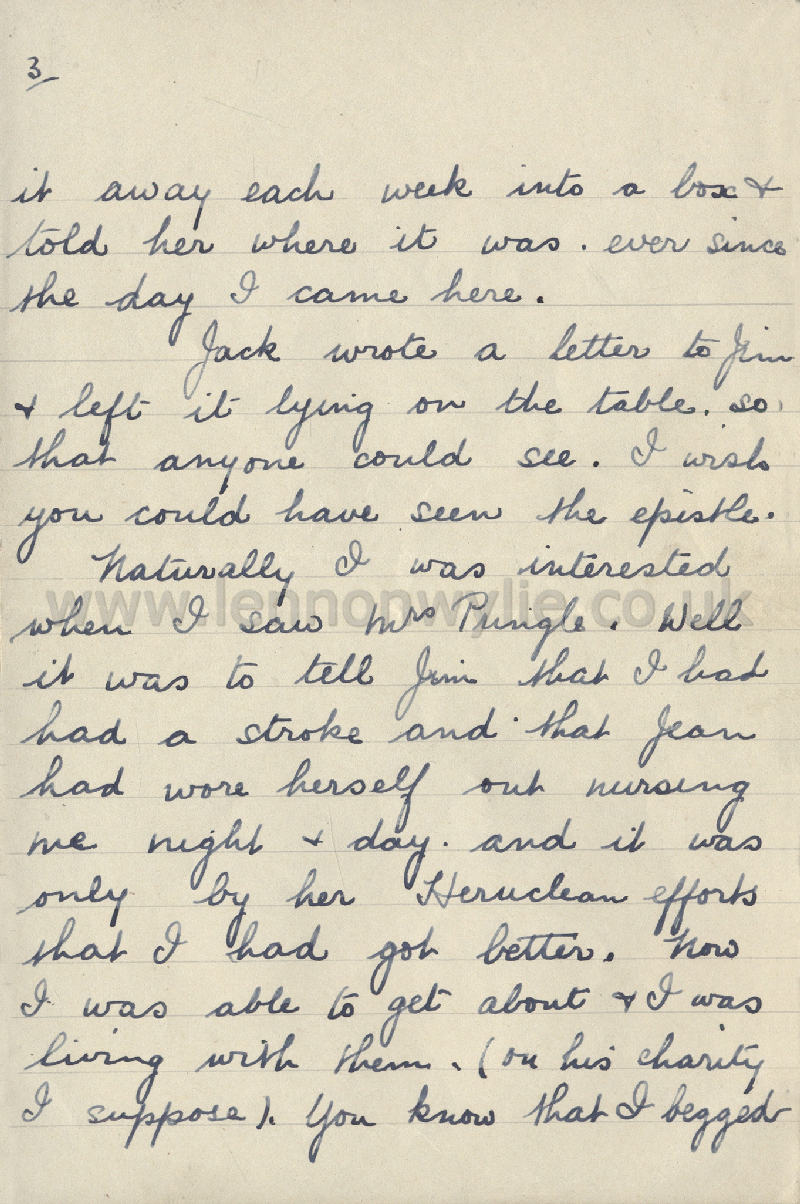 3
it away each week into a box &
told her where it was. ever since
the day I came here.
Jack wrote a letter to Jim
& left it lying on the table. so
that anyone could see. I wish
you could have seen the epistle.
Naturally I was interested
www.lennonwylie.co.uk
when I saw Mrs Pringle. Well
it was to tell Jim that I had
had a stroke and that Jean
had wore herself out nursing
me night & day. and it was
only by her Heruclean efforts
that I had got better. Now
I was able to get about & I was
living with them. (on his charity
I suppose). You know that I begged